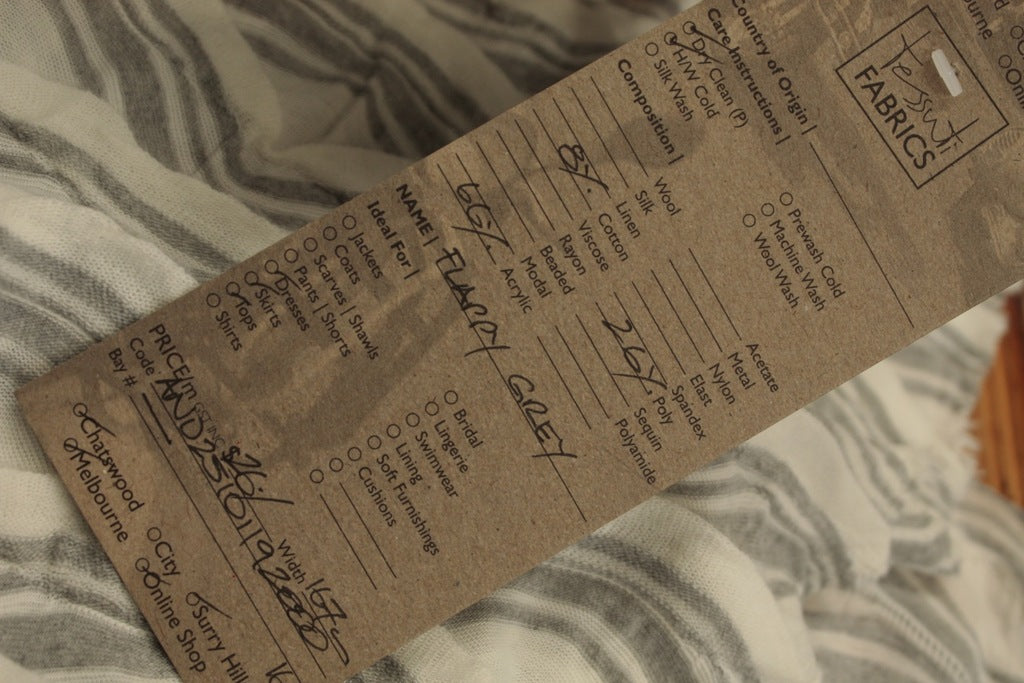 Tessuti
FABRICS
Country of Origin |
Care Instructions |
Dry Clean (P)
H/W Cold
Silk Wash
Prewash Cold
Machine Wash
Wool Wash
Composition |
Wool
Silk
Linen
8% Cotton
Viscose
Rayon
Beaded
Modal
66% Acrylic
Acetate
Metal
Nylon
Elast
Spandex
26% Poly
Sequin
Polyamide
NAME | FLAPPY GREY
Ideal For |
Jackets
Coats
Scarves | Shawls
Pants | Shorts
Dresses
Skirts
Tops
Shirts
Bridal
Lingerie
Swimwear
Lining
Soft Furnishings
Cushions
PRICE $26/ Width
Code
Bay #
Chatswood
Melbourne
City
Online Shop
Surry Hill